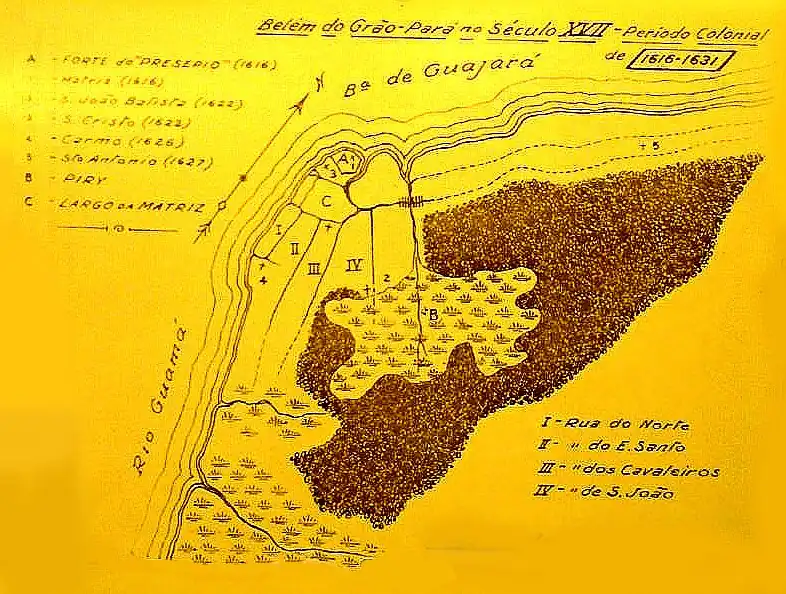 Belém do Grão-Pará no Século XVII - Período Colonial
de 1616-1631
A - FORTE do "PRESEPIO" (1616)
1 - Matriz (1616)
2 - S. João Batista (1622)
3 - S. Cristo (1622)
4 - Carmo (1626)
5 - Sto Antonio (1627)
B - PIRY
C - LARGO DA MATRIZ
N
Bª de Guajará
A
1
3
C
5
I
II
III
IV
4
2
B
Rio Guamá
I - Rua do Norte
II - " do E. Santo
III - " dos Cavaleiros
IV - " de S. João